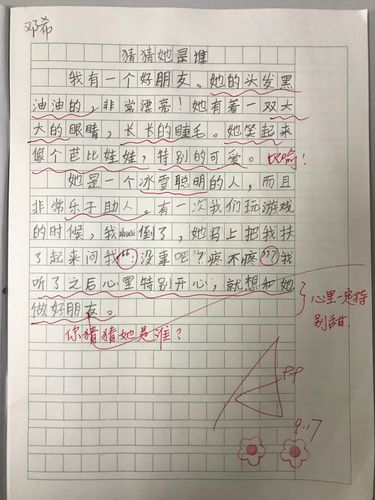 邓希
猜猜她是谁
我有一个好朋友。她的头发黑
油油的，非常漂亮！她有着一双大
大的眼睛，长长的睫毛。她笑起来
像个芭比娃娃，特别的可爱。比喻！
她是一个冰雪聪明的人，而且
非常乐于助人。有一次我们玩游戏
的时候，我shuai倒了，她马上把我扶
了起来问我：“没事吧？疼不疼？”我
听了之后心里特别开心，就想和她
做好朋友。
心里一定特
别甜.
你猜猜她是谁？
9.17